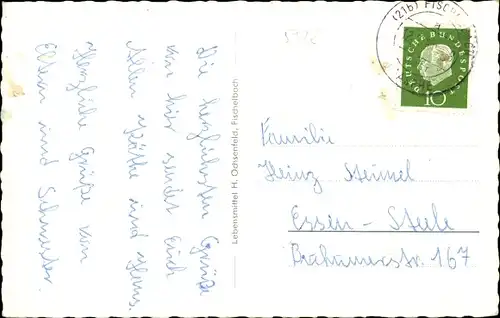 Die herzlichsten Grüße
von hier sendet Euch
Allen Käthe und Hans.
Herzliche Grüße von
Eltern und Schwester.
Lebensmittel H. Ochsenfeld, Fischelbach
(21b) FISCHELBACH
DEUTSCHE BUNDESPOST
10
Familie
Heinz Steimel
Essen - Steele
Brahmsstr. 167